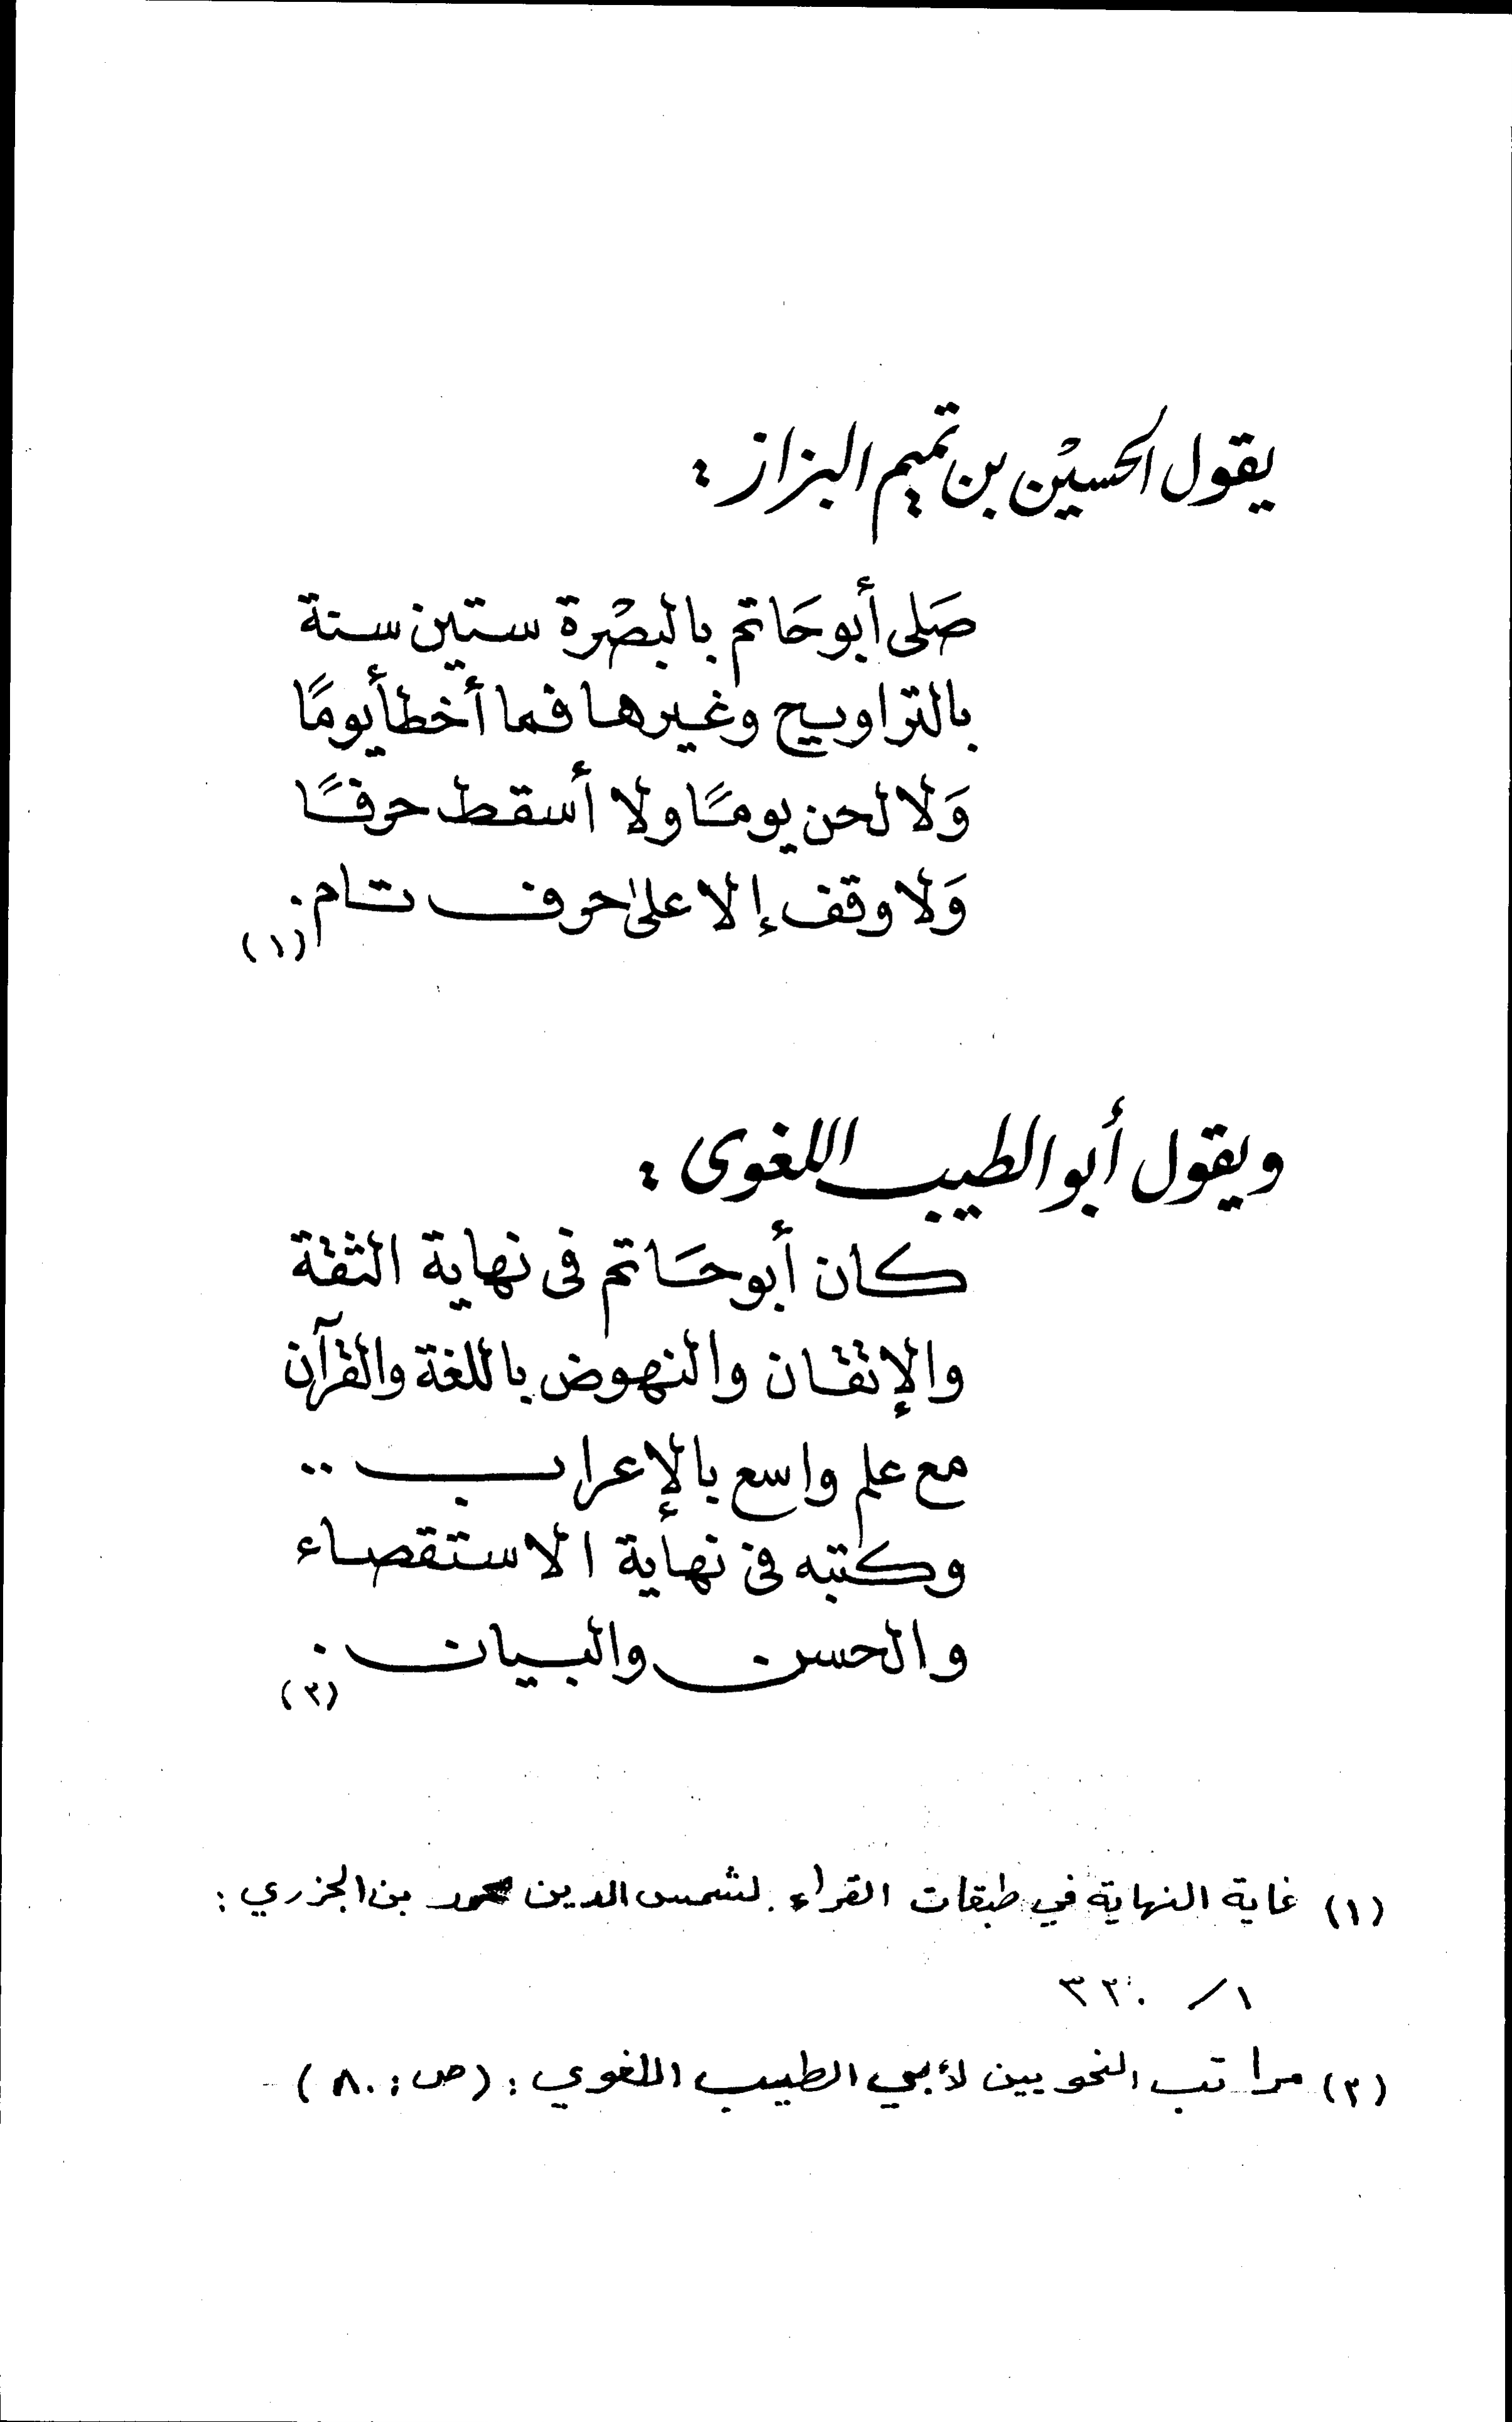 يقول الحسيْن بن تميم البزاز :
صَلى أبو حَاتم بالبصْرة ستين سنة
بالتراويح وغيرها فما أخطأ يومًا
وَلا لحن يومًا ولا أسقط حرفًا
وَلا وقف إلا على حرف تام . (١)
ويقول أبو الطيب اللغوى :
كان أبو حَاتم فى نهاية الثقة
والإتقان والنهوض باللغة والقرآن
مع علم واسع بالإعراب ..
وكتبه فى نهاية الاستقصاء
والحسن والبيان . (٢)
(١) غاية النهاية في طبقات القراء لشمس الدين محمد بن الجزري :
١ / ٣٢٠
(٢) مراتب النحويين لأبي الطيب اللغوي : (ص : ٨٠)